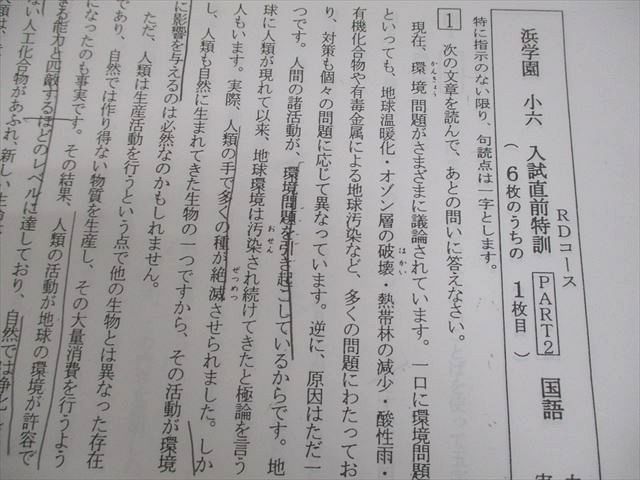 RDコース
浜学園 小六 入試直前特訓 PART2 国語
（6枚のうちの 1枚目）
特に指示のない限り、句読点は一字とします。
1 次の文章を読んで、あとの問いに答えなさい。
現在、環境問題がさまざまに議論されています。一口に環境問題
かんきょう
といっても、地球温暖化・オゾン層の破壊・熱帯林の減少・酸性雨・
はかい
有機化合物や有毒金属による地球汚染など、多くの問題にわたってお
り、対策も個々の問題に応じて異なっています。逆に、原因はただ一
つです。人間の諸活動が、環境問題を引き起こしているからです。地
球に人類が現れて以来、地球環境は汚染され続けてきたと極論を言う
おせん
人もいます。実際、人類の手で多くの種が絶滅させられました。しか
ぜつめつ
し、人類も自然に生まれてきた生物の一つですから、その活動が環境
に影響を与えるのは必然なのかもしれません。
ただ、人類は生産活動を行うという点で他の生物とは異なった存在
であり、自然では作り得ない物質を生産し、その大量消費を行うよう
になったのも事実です。その結果、人類の活動が地球の環境が許容で
る能力と匹敵するほどのレベルに達しており、自然では浄化し
ない人工化合物があふれ、新しい生命